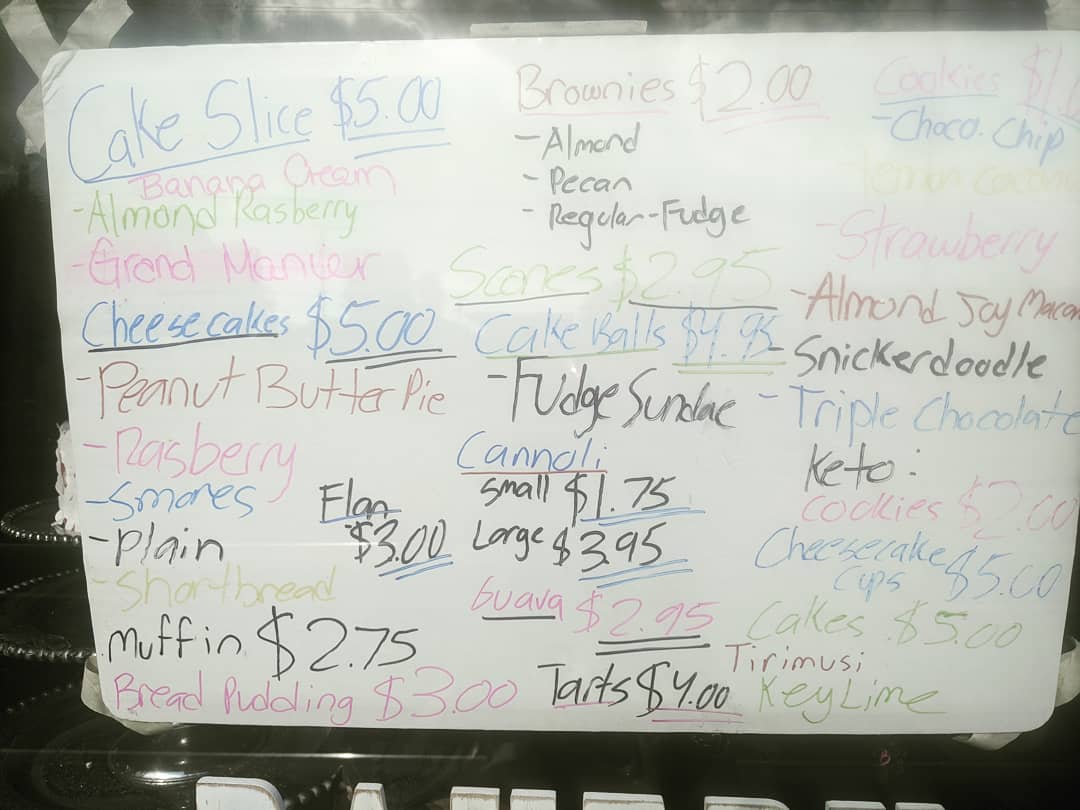 Cake Slice $5.00
Banana Cream
-Almond Rasberry
-Grand Manier
Cheesecakes $5.00
-Peanut Butter Pie
-Rasberry
-Smores
-Plain
-Shortbread
Flan
$3.00
Muffin $2.75
Bread Pudding $3.00
Brownies $2.00
-Almond
-Pecan
-Regular-Fudge
Scones $2.95
Cake Balls $4.95
-Fudge Sundae
Cannoli
small $1.75
Large $3.95
Guava $2.95
Tarts $4.00
Cookies
-Choco. Chip
Lemon
-Strawberry
-Almond Joy
-Snickerdoodle
-Triple Chocolate
Keto:
Cookies $2.00
Cheesecake
Cups $5.00
Cakes $5.00
Tirimusi
KeyLime